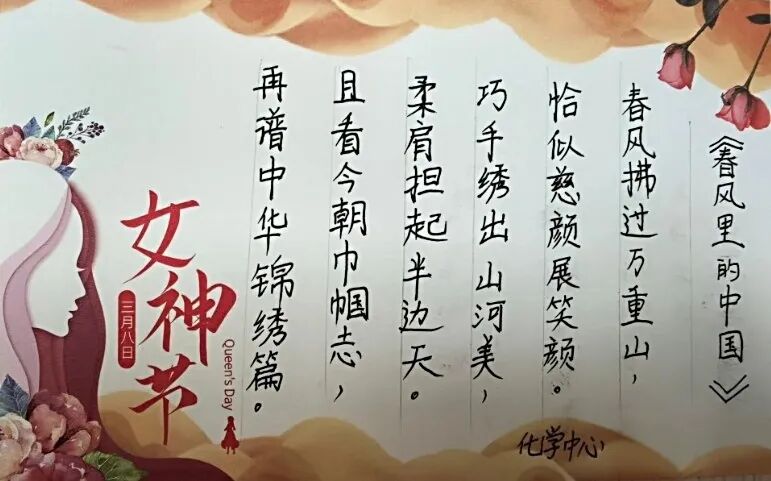 《春风里的中国》
春风拂过万重山，
恰似慈颜展笑颜。
巧手绣出山河美，
柔肩担起半边天。
且看今朝巾帼志，
再谱中华锦绣篇。
化学中心
女神节
三月八日
Queen's Day